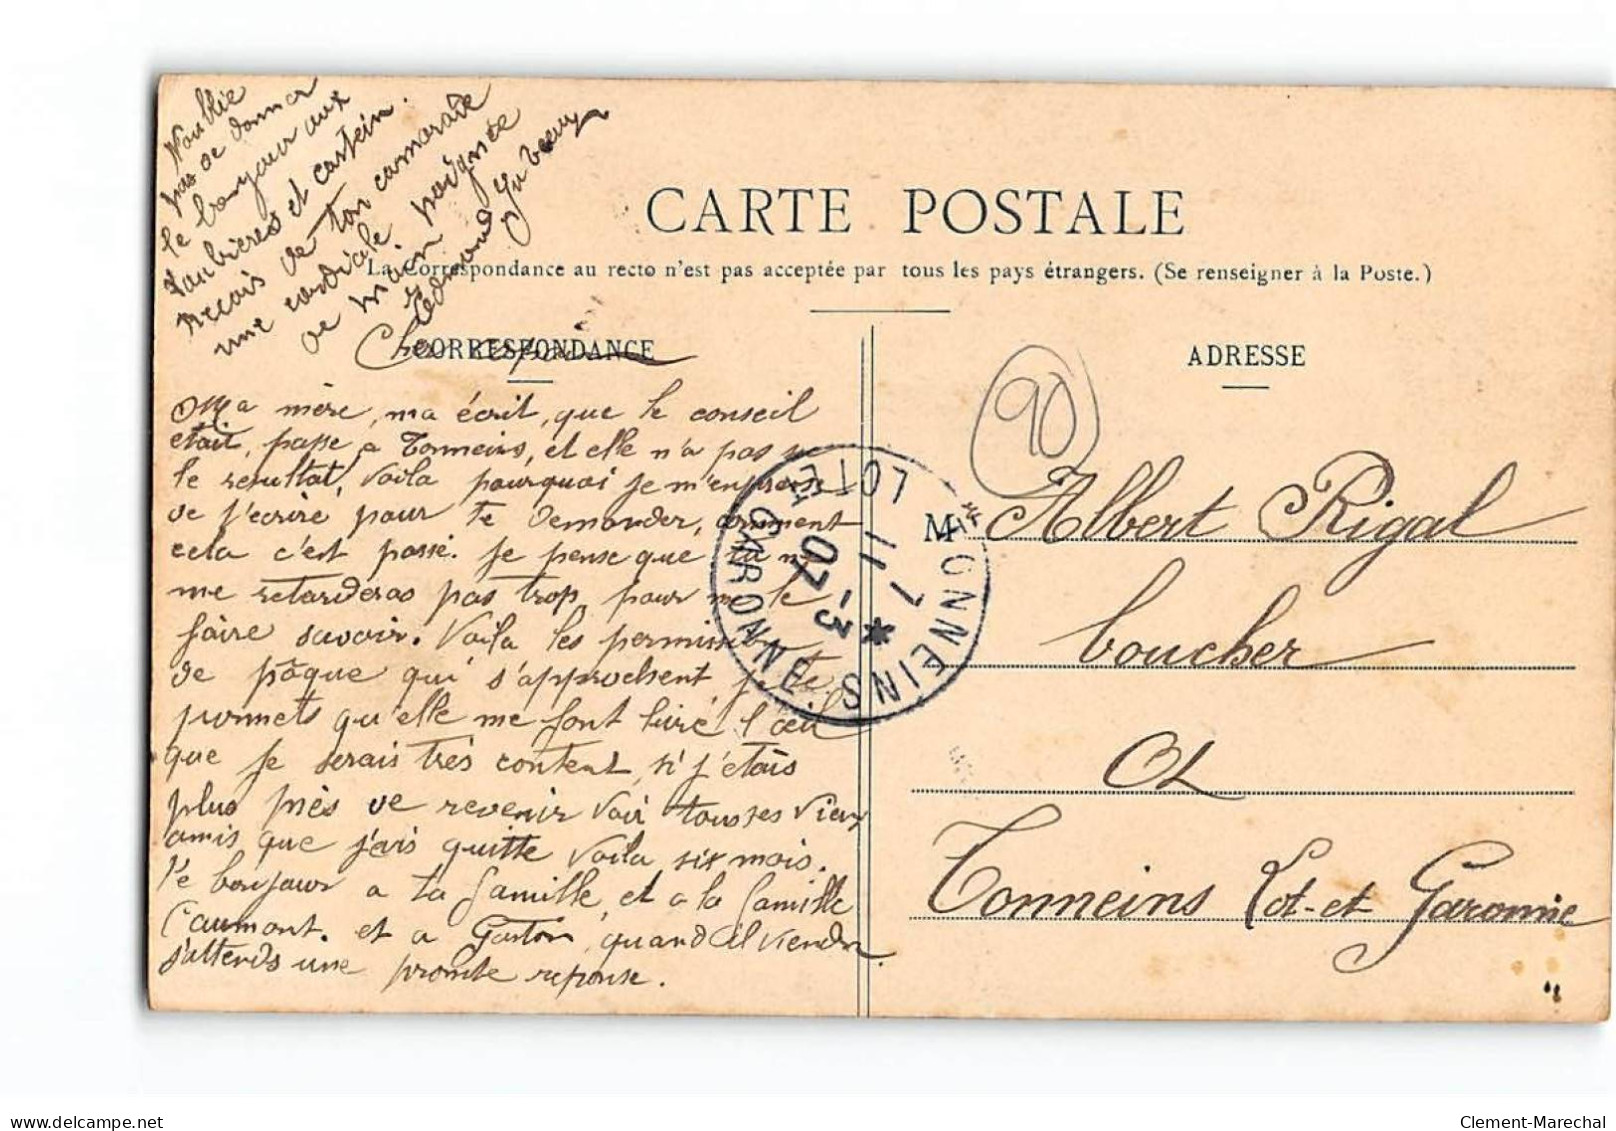 CARTE POSTALE
La Correspondance au recto n'est pas acceptée par tous les pays étrangers. (Se renseigner à la Poste.)
CORRESPONDANCE
Cher copain
Ma mère, ma écrit, que le conseil
était, passe a Tonneins, et elle n'a pas su
le resultat, Voila pourquoi je m'enpresse
de t'ecrire pour te demander, comment
cela c'est passé. Je pense que tu ne
me retarderas pas trop, pour me le
faire savoir. Voila les permissions
de pâque qui s'approchent, je te
promets qu'elle me font livré l'œil
que je serais très content, si j'étais
plus près de revenir voir tousses vieux
amis que j'ais quitte voila six mois.
Le bonjour a ta famille, et a la famille
Caumont. et a Gaston, quand il viendra.
J'attends une promte reponse.
N'oublie
pas de donner
le bonjour aux
et
Reçois de ton camarade
une cordiale poignée
de main
Edmond
ADRESSE
90
M Albert Rigal
boucher
a
Tonneins Lot-et Garonne
TONNEINS
LOT ET GARONNE
7 * 11 -3 07
delcampe.net
Clement-Marechal